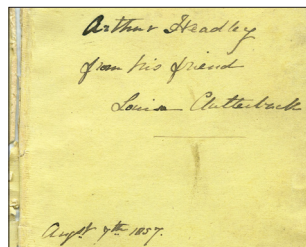 Arthur Headley
from his friend
Louisa Clutterbuck
Augst 7th 1857.